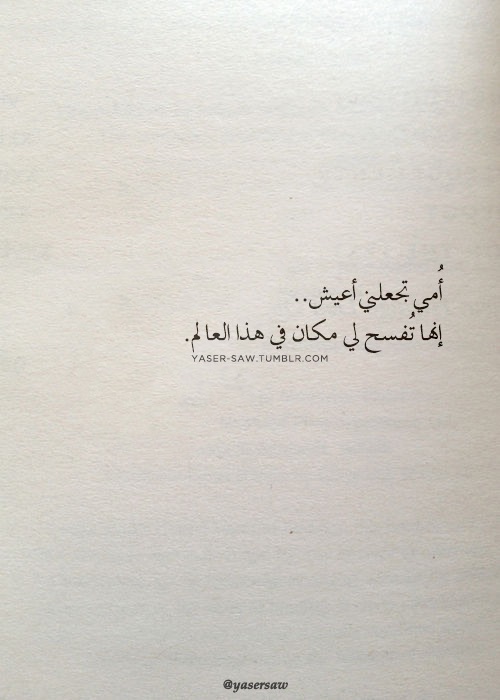 أُمي تجعلني أعيش..
إنها تُفسح لي مكان في هذا العالم.
YASER-SAW.TUMBLR.COM
@yasersaw